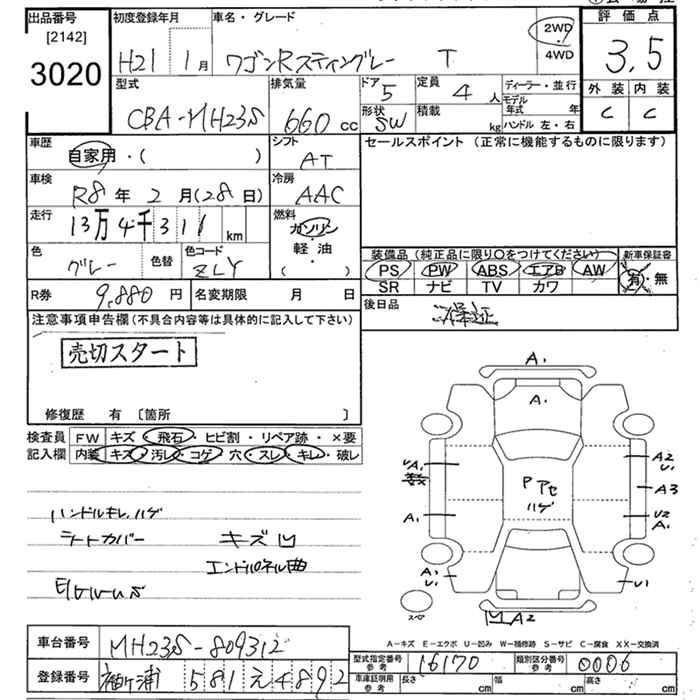 出品番号 初度登録年月 車名・グレード 評価点
[2142]
3020
H21 1月 ワゴンRスティングレー T 2WD・4WD 3.5
型式 排気量 ドア 5 定員 4人 ディーラー・並行 外装 内装
CBA-MH23S 660cc 形状 SW 積載 kg モデル年式 年 C C
ハンドル 左・右
車歴 シフト セールスポイント(正常に機能するものに限ります)
自家用・( ) AT
車検 冷房
R8年2月(28日) AAC
走行 燃料
13万4千311km ガソリン
軽・油
( )
色 色替 色コード
グレー ZLY
装備品(純正品に限り○をつけてください) 新車保証書
PS PW ABS エアB AW 有・無
SR ナビ TV カワ
R券 9,880円 名変期限 月 日 後日品
保証
注意事項申告欄(不具合内容等は具体的に記入して下さい)
売切スタート
修復歴 有〔箇所 〕
検査員 FW キズ・飛石・ヒビ割・リペア跡・×要
記入欄 内装 キズ・汚レ・コゲ・穴・スレ・キレ・破レ
ハンドルキレ,ハゲ
ライトカバー キズ凹
エンドパネル曲
A1
A1
A2
A3
A1
Pアセ
ハゲ
U2
A1
A1
U1
U1
A2
スペア
A-キズ E-エクボ U-凹み W-補修跡 S-サビ C-腐食 XX-交換済
車台番号 MH23S-809312
型式指定番号 参考 16170 類別区分番号 参考 0006
登録番号 袖ヶ浦 581 え 4892
車庫証明用 参考 長さ cm 幅 cm 高さ cm